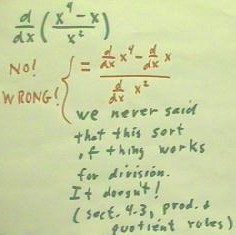 d/dx ( x⁴ - x / x² )
NO! WRONG! { = d/dx x⁴ - d/dx x / d/dx x²
we never said
that this sort
of thing works
for division.
It doesn't!
(sect. 4.3, prod. &
quotient rules)